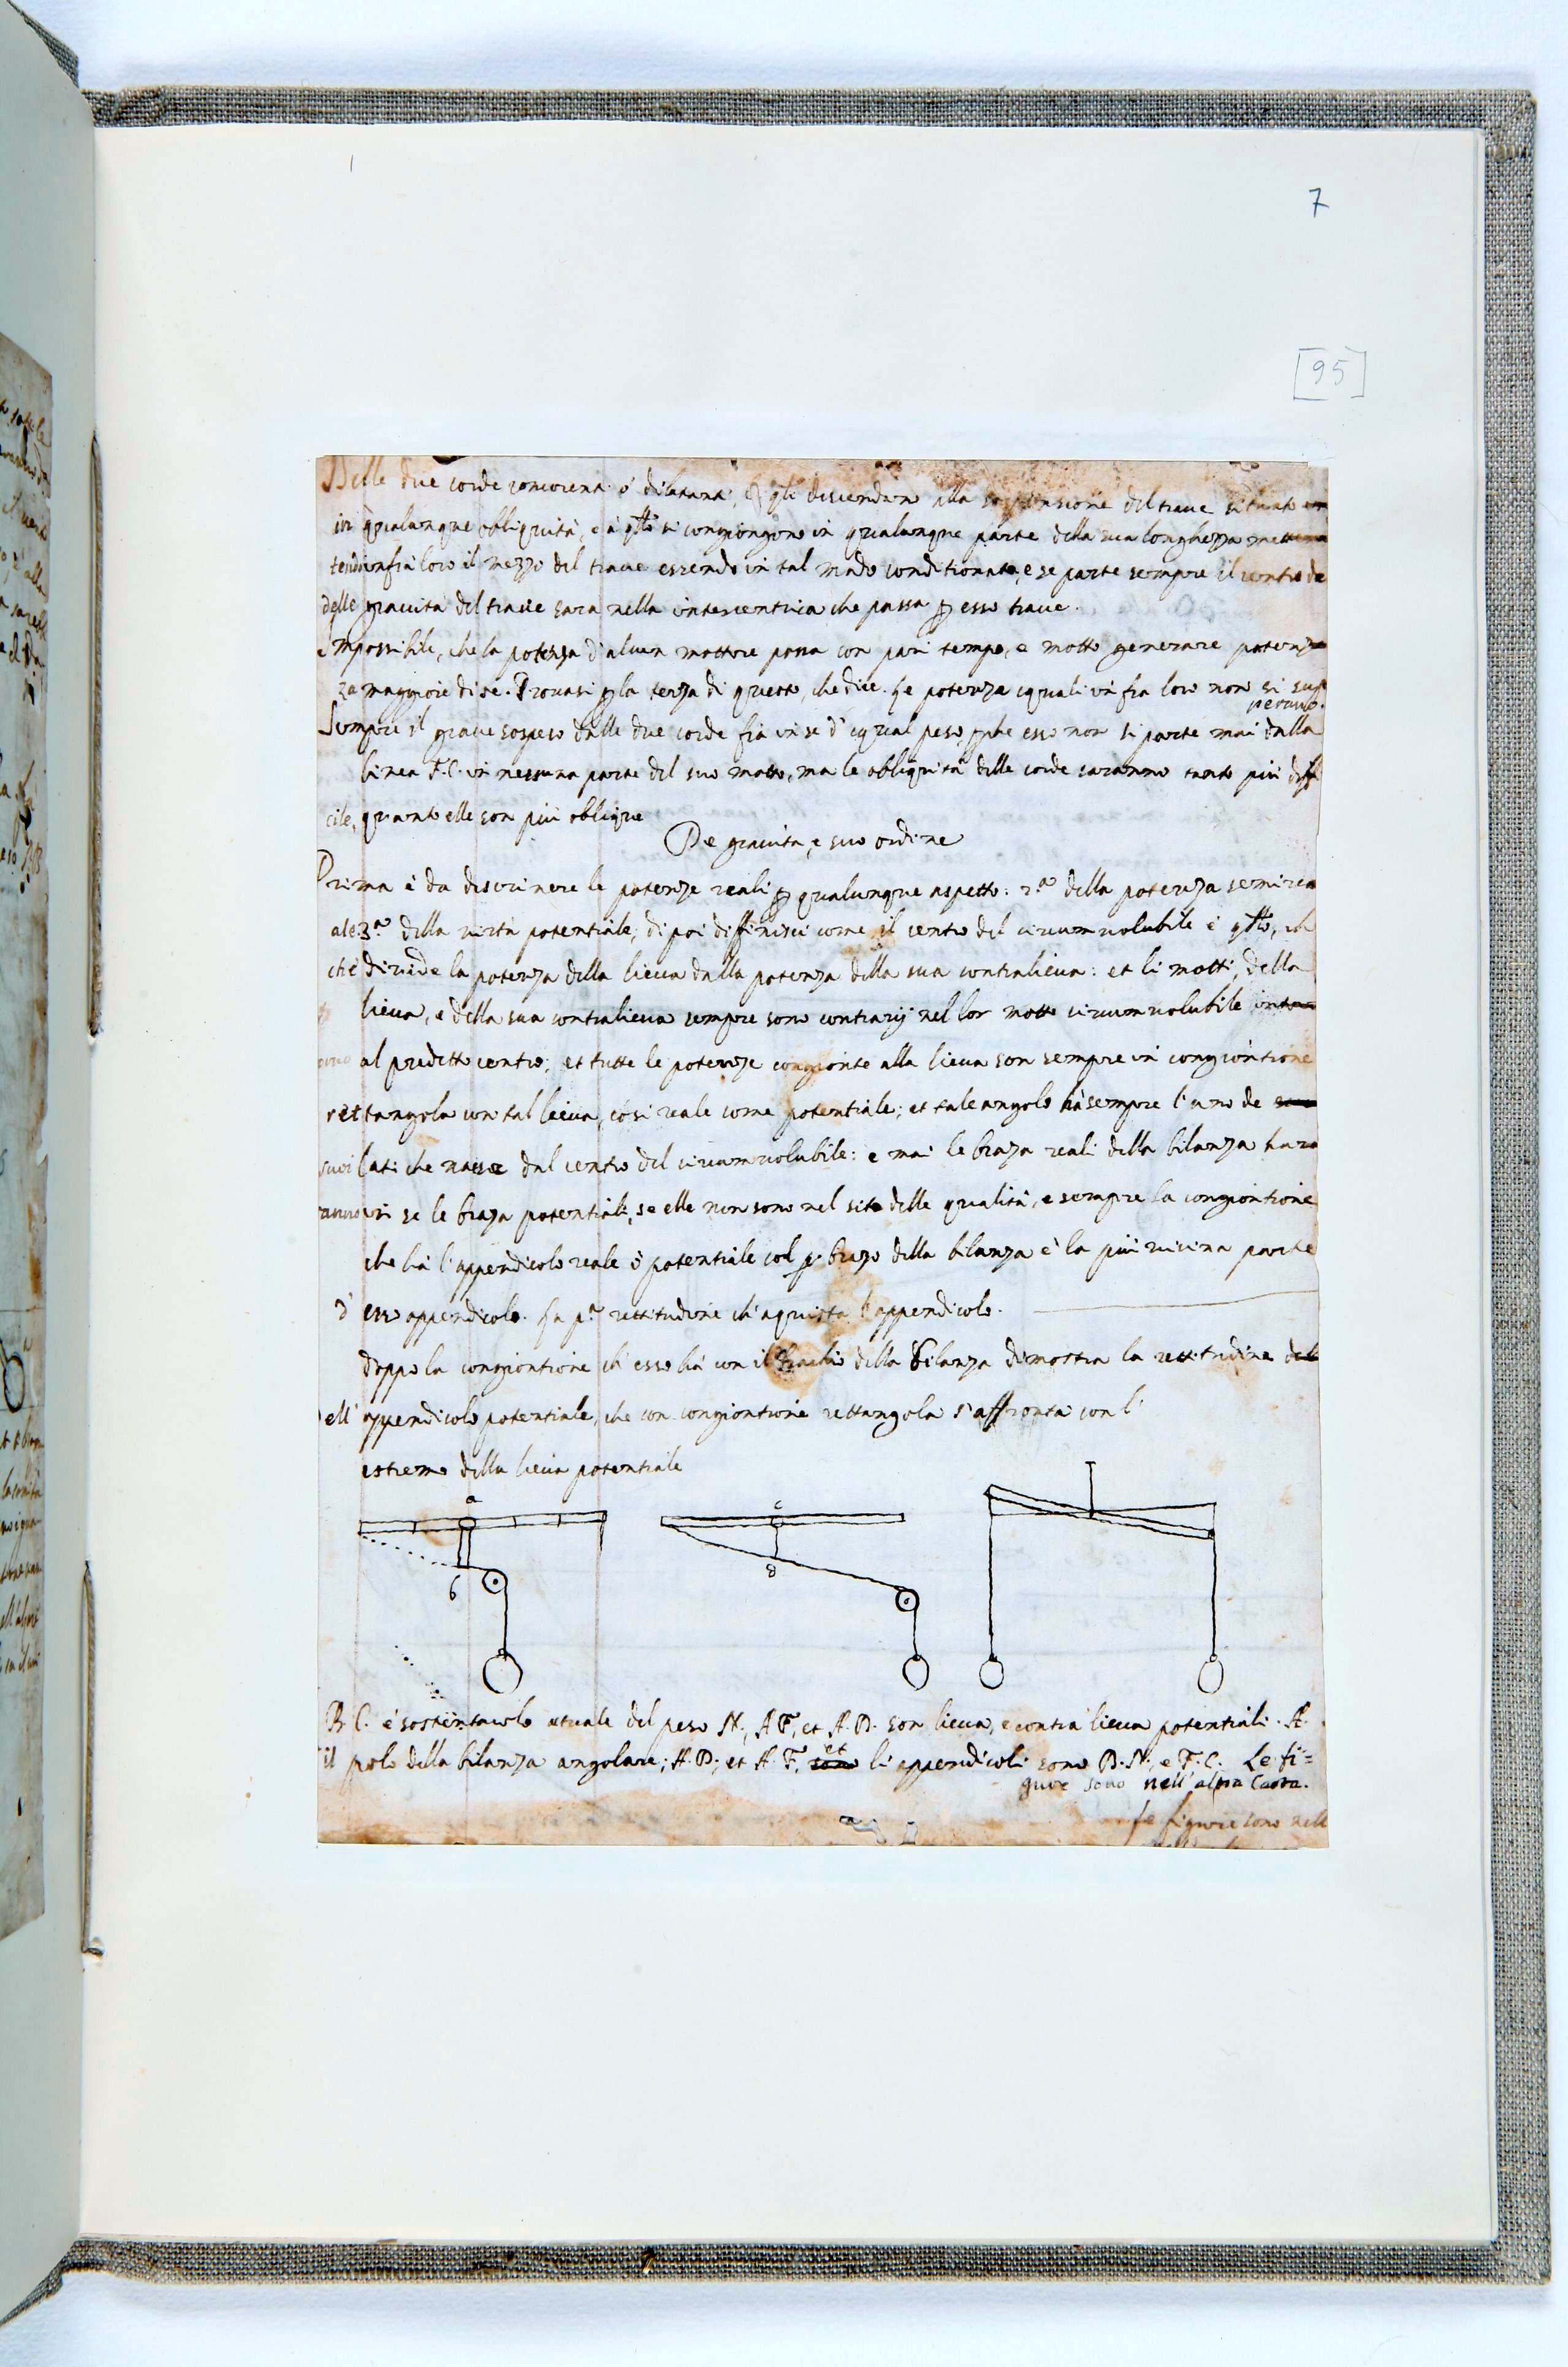 7
[95]
Delle due corde concorenti ò dilatanti, qli discendan alla sospensione del traue situato
in qualunque obbliquità, e à qsto si congiongono in qualunque parte della sua longhezza
infra loro il mezzo del traue essendo in tal modo conditionato, e se parte sempre il centro de
delle grauità del traue sara nella intercentrica che passa p esso traue.
mpossibile, che la potenza d'alcun mottore possa con pari tempo, e motto generare potenz
za maggiore di se. Prouasi p la terza di questo, che dice. Le potenze equali in fra loro non si sup
perano.
Sempre il graue sospeso dalle due corde fia in se d'equal peso, pche esso non si parte mai dalla
linea F.C. in nessuna parte del suo motto, ma le obliquità delle corde saranno tanto più diffi
cile, quanto elle son più oblique
De grauita, e suo ordine
Prima è da descriuere le potenze reali p qualunque aspetto: 2.a della potenza semirea
ale 3.a della uirtà potentiale, di poi diffinisci come il centro del circumuolubile è qllo, ch
che diuide la potenza della lieua dalla potenza della sua contralieua: et li motti della
lieua, e della sua contralieua sempre sono contrarij nel lor motto circumuolubile
al predetto centro; et tutte le potenze congionte alla lieua son sempre in congiontione
rettangola con tal lieua, cosi reale come potentiale; et tale angolo hà sempre l'uno de
suoi lati che nasce dal centro del circumuolubile: e mai le braza reali della bilanza hara
ranno in se le braza potentiali, se elle non sono nel sito delle qualità, e sempre la congiontione
che hà l'appendicolo reale ò potentiale col p.o brazo della bilanza è la più uicina parte
d' esso appendicolo. La p.a rettitudine ch'aquista l'appendicolo.
doppo la congiontione ch'esso hà con il brachio della bilanza dimostra la rettitudine del
ell' appendicolo potentiale, che con congiontione rettangola s'affronta con l'
estremo della lieua potentiale
a
b
c
d
B.C. è sostentacolo atuale del peso N., A F, et A.D. son lieua, e contra lieua potentiali. A.
il polo della bilanza angolare; A.D., et A.F. sono et li appendicoli sono D.N., e F.C. Le fi=
gure sono nell'altra Carta.
Le figure sono nell